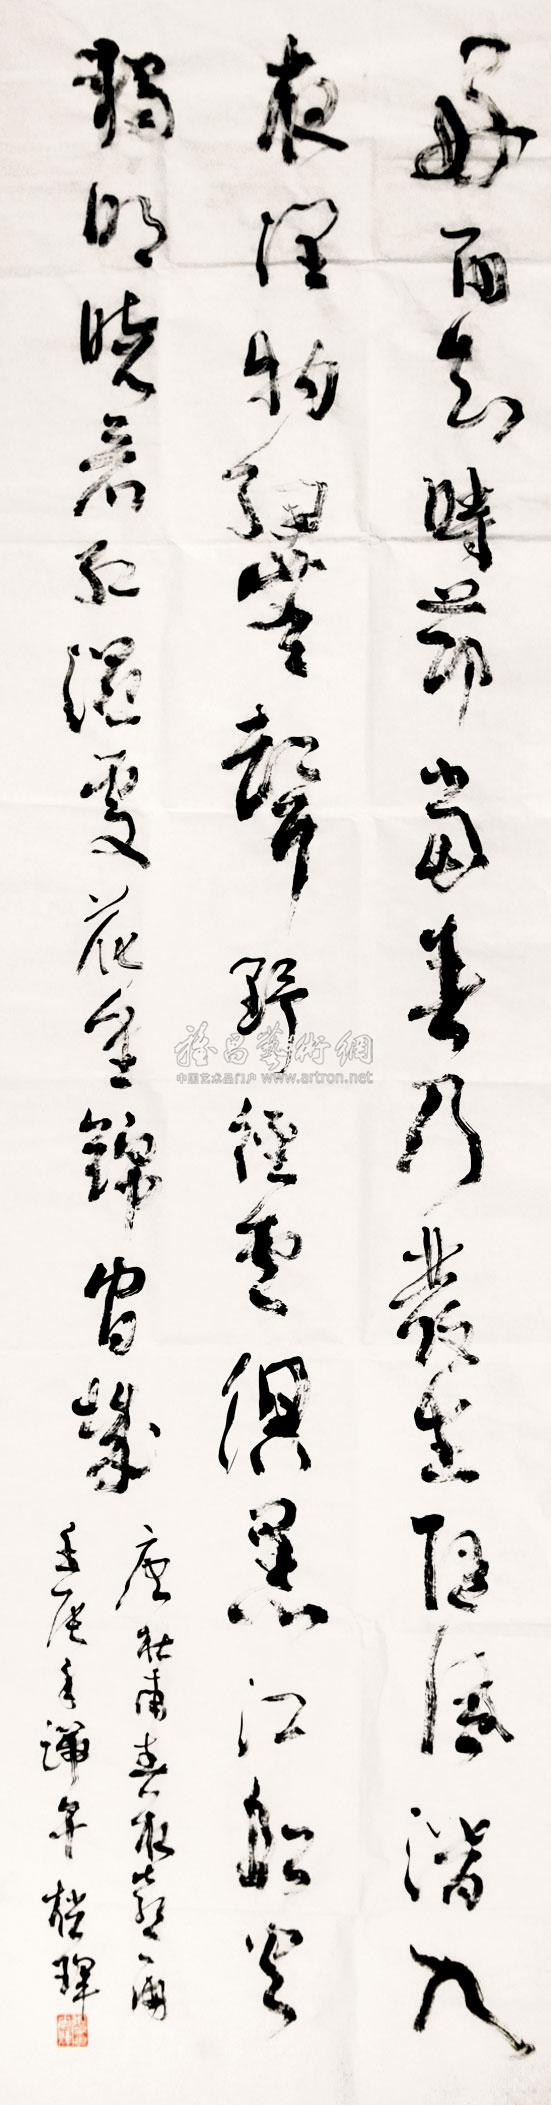 好雨知時節當春乃發生隨風潛入
夜潤物細無聲野徑雲俱黑江船火
獨明曉看紅濕處花重錦官城
唐杜甫春夜喜雨
壬辰年端午
雅昌藝術網
中国艺术品门户 www.artron.net